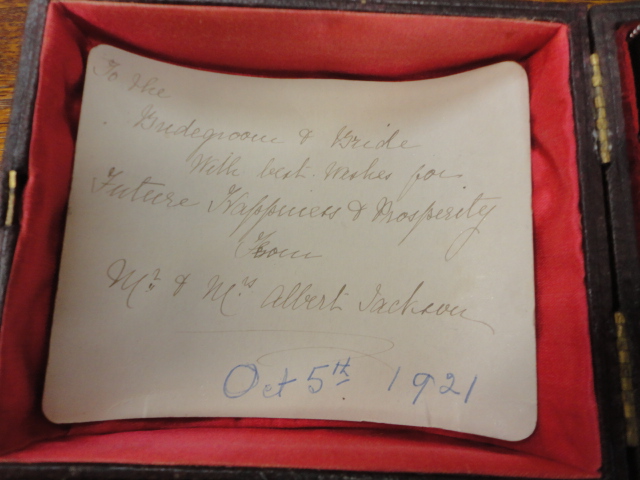 To the
Bridegroom & Bride
With best wishes for
Future Happiness & Prosperity
From
Mr & Mrs Albert Jackson
Oct 5th 1921